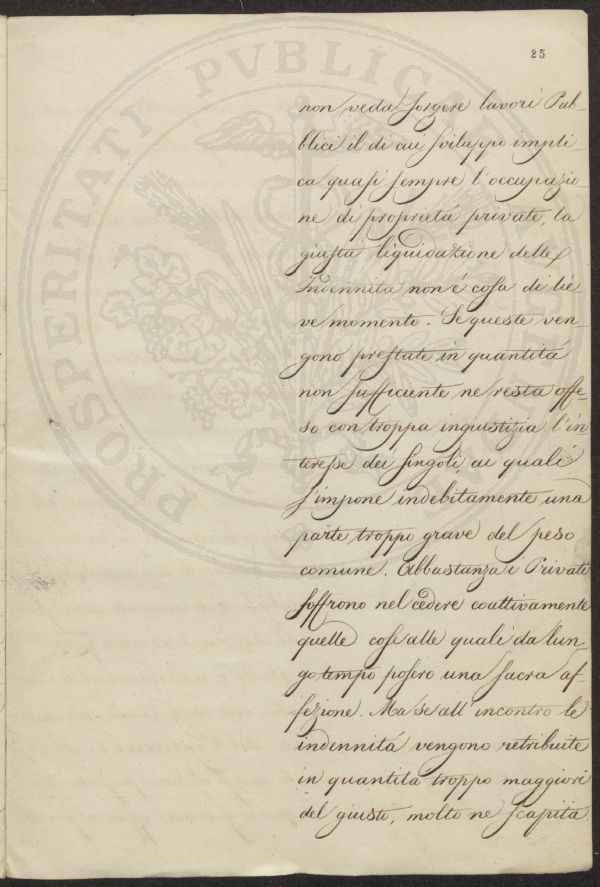 25
PROSPERITATI PVBLICAE
non veda sorgere lavori Pub-
blici il di cui sviluppo impli
ca quasi sempre l'occupazio-
ne di proprietá private, la
giusta liquidazione delle
Indennita non é cosa di lie-
ve momento. Se queste ven-
gono prestate in quantitá
non sufficiente, ne resta offe-
so con troppa ingiustizia l'in
teresse dei singoli, ai quali
s'impone indebitamente una
parte troppo grave del peso
comune. Abbastanza i Privati
soffrono nel cédere coattivamente
quelle cose alle quali da lun-
go tempo posero una sacra af-
fezione. Ma se all'incontro le
indennitá vengono retribuite
in quantita troppo maggiori
del giusto, molto ne scapita